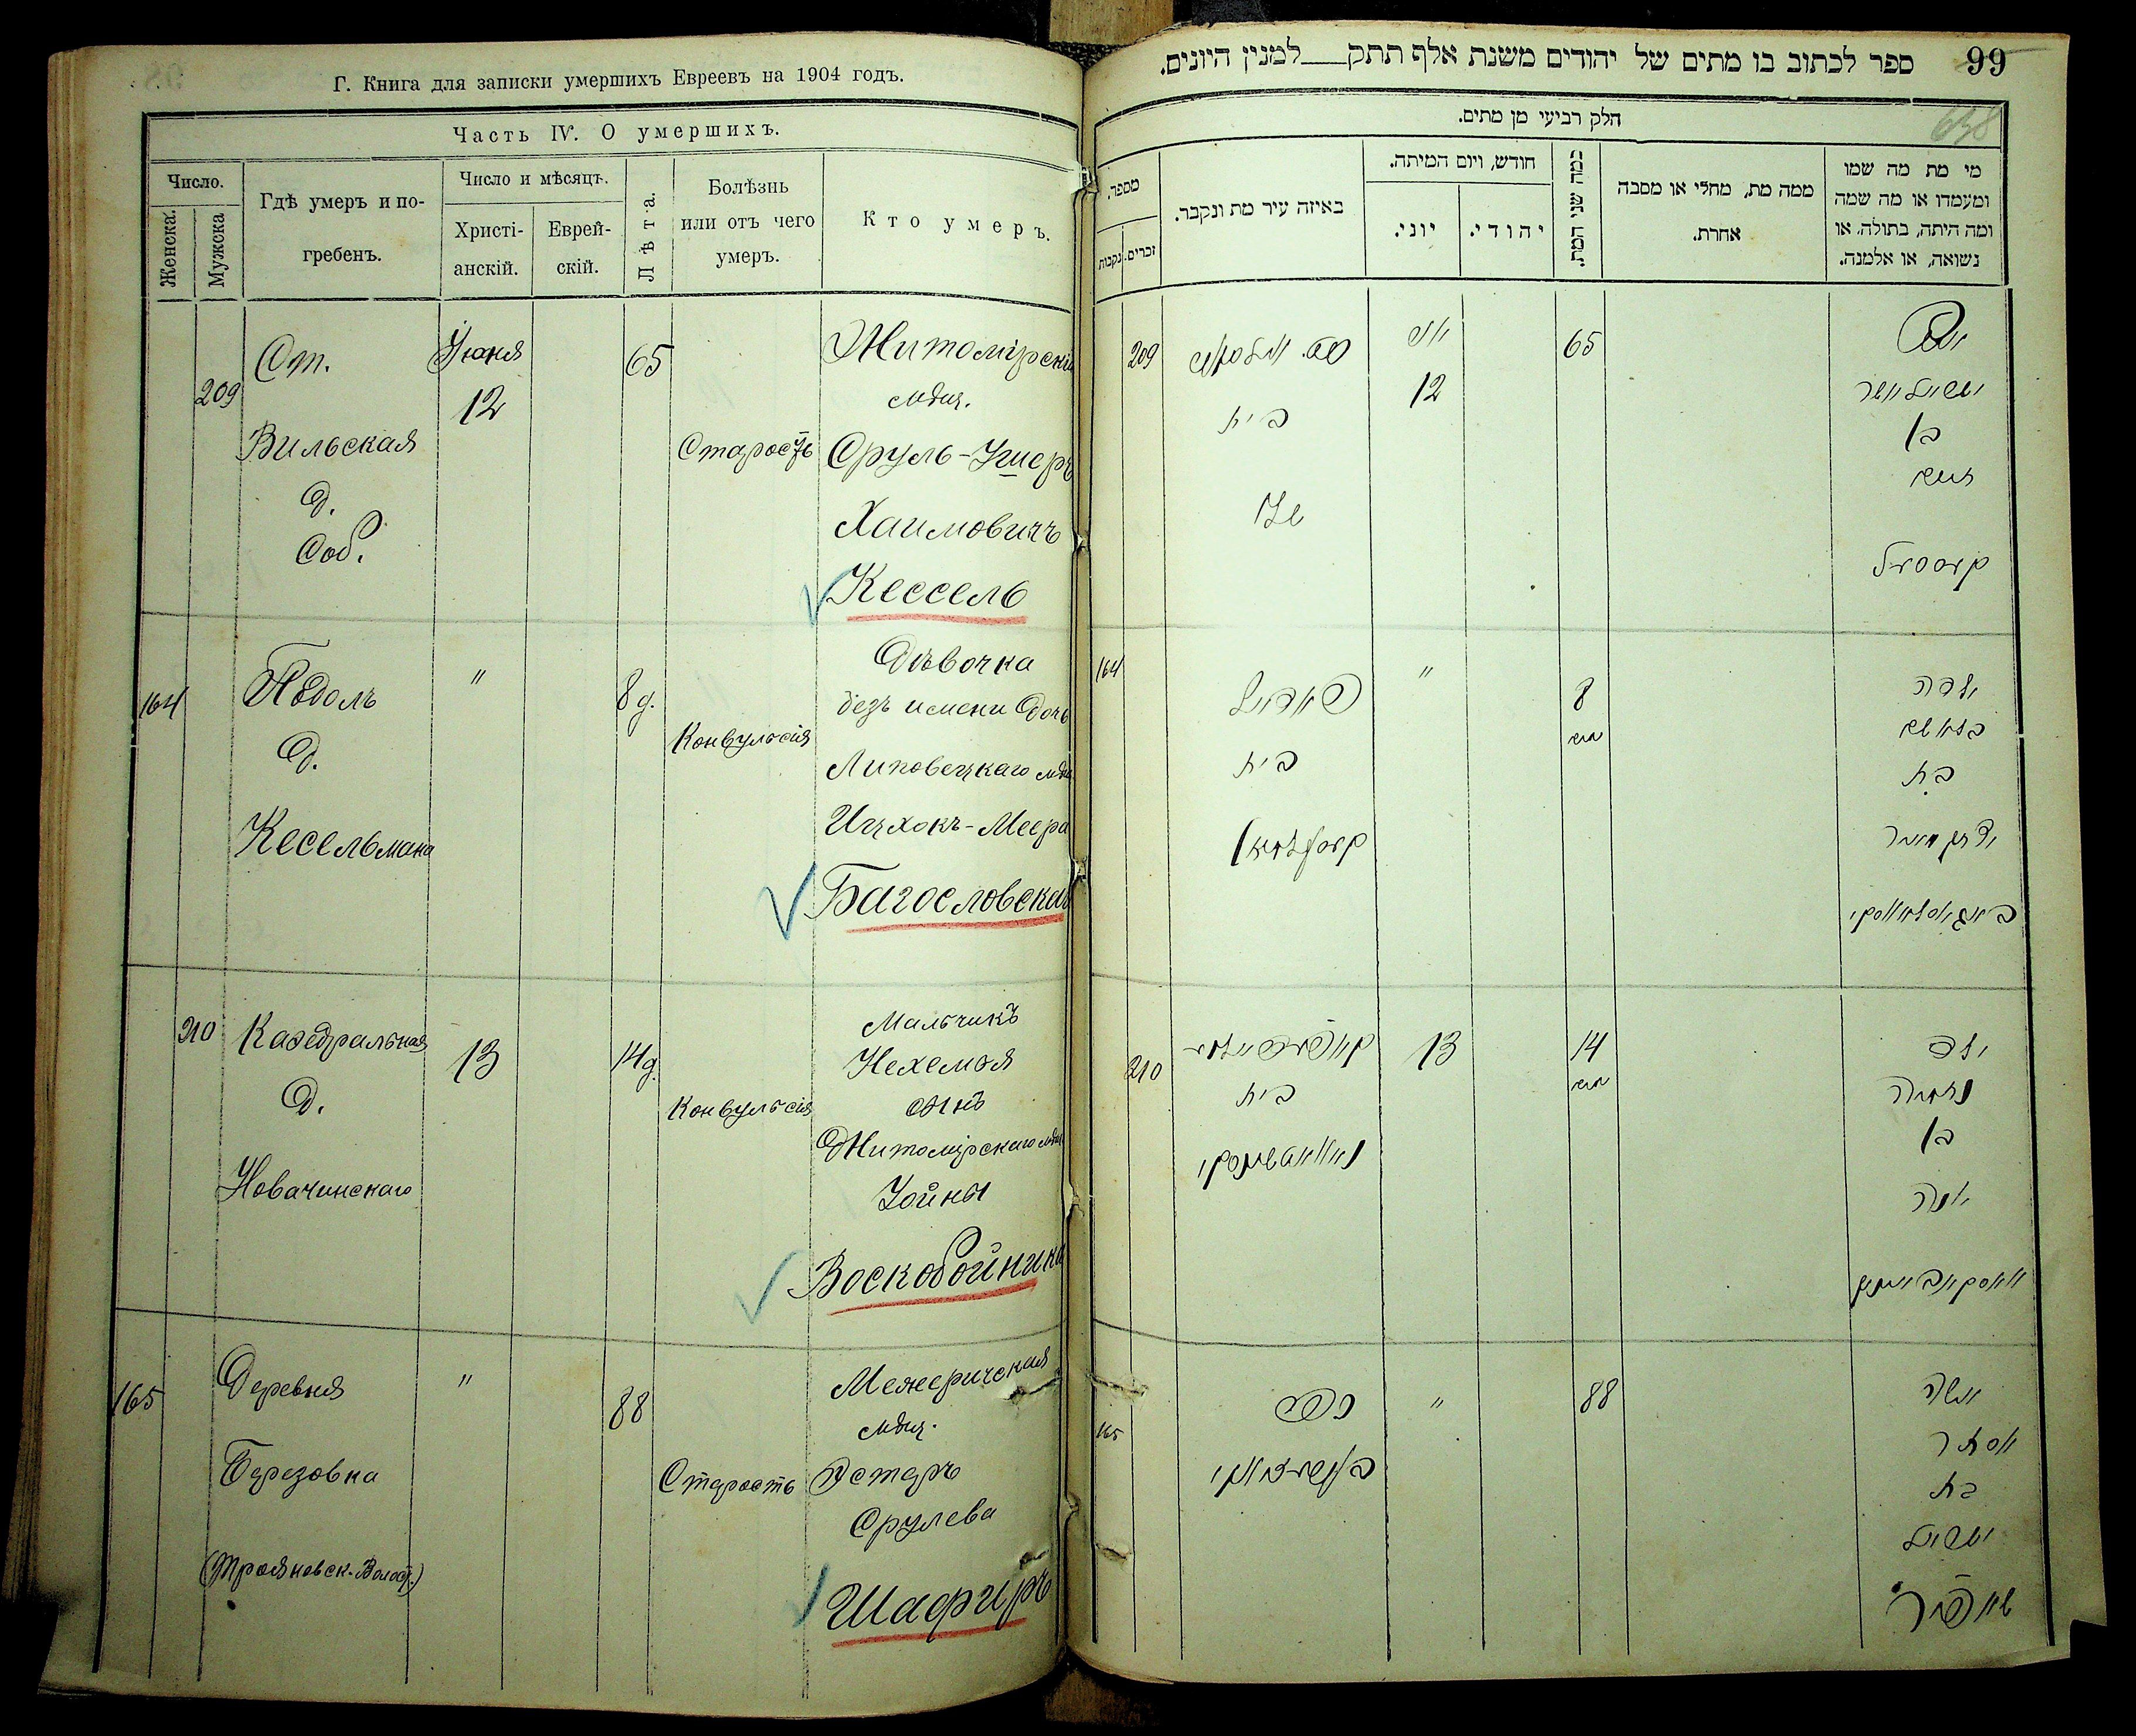 Г. Книга для записки умершихъ Евреевъ на 1904 годъ.
Часть IV. О умершихъ.
Число.
Женска.
Мужска
Гдѣ умеръ и по-
гребенъ.
Число и мѣсяцъ.
Христі-
анскій.
Еврей-
скій.
Лѣта.
Болѣзнь
или отъ чего
умеръ.
Кто умеръ.
209
Ст.
Вильская
д.
Соб.
Іюня
12
65
Старость
Житомірскій
мѣщ.
Сруль-Ушеръ
Хаимовичъ
Кессель
164
Подолъ
д.
Кесельмана
"
8 д.
Конвульсія
Дѣвочка
безъ имени Дочь
Липовецкаго мѣщ
Ицхокъ-Меера
Багословскаго
210
Кафедральная
д.
Новачинскаго
13
14 д.
Конвульсія
Мальчикъ
Нехемья
сынъ
Житомірскаго мѣщ
Іойны
Воскобойника
165
Деревня
Березовка
(Трояновск. Волост.)
"
88
Старость
Межеричская
мѣщ.
Эстеръ
Срулева
Шафиръ
99
ספר לכתוב בו מתים של יהודים משנת אלף תתק למנין היונים.
638
חלק רביעי מן מתים.
מספר.
זכרים.
נקבות
באיזה עיר מת ונקבר.
חודש, ויום המיתה.
יוני.
יהודי.
כמה שני המת.
ממה מת, מחלי או מסבה
אחרת.
מי מת מה שמו
ומעמדו או מה שמה
ומה היתה, בתולה, או
נשואה, או אלמנה.
209
בית
12
65
בן
קעססעל
164
פאדאל
בית
קעסעלמאן
"
8
ילדה
בת
יצחק מאיר
210
בית
13
14
ילד
נחמיה
בן
יונה
וואסקאבייניק
165
כפר
"
88
אשה
אסתר
בת
ישראל
שאפיר